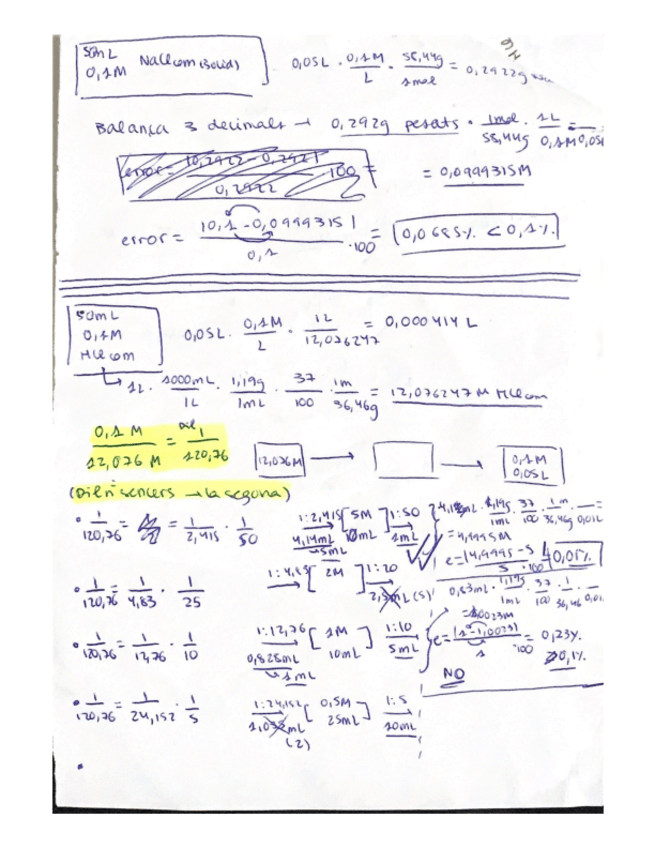 50mL
0,1M NaCl com (solid)
0,05L · 0,1M/L · 58,44g/1mol = 0,2922g
Balança 3 decimals → 0,292g pesats · 1mol/58,44g · 1L/0,1M 0,05L =
error = |0,2922 - 0,292|/0,2922 · 100 =
= 0,0999315M
error = |0,1 - 0,0999315|/0,1 · 100 = 0,0685% < 0,1%
50mL
0,1M
HCl com
0,05L · 0,1M/L · 1L/12,076247 = 0,000414 L
1L · 1000mL/1L · 1,19g/1mL · 37/100 · 1m/36,46g = 12,076247 M HCl com
0,1 M/12,076 M = 1/120,76
12,076M → → 0,1M 0,05L
(Dil sencers → la segona)
· 1/120,76 = 1/2,415 · 1/50
1:2,415 → [5M 10mL] 1:50 →
4,14mL → 5mL
1mL
1,19g/1mL · 37/100 · 1m/36,46g
= 4,9995M
e = |4,9995 - 5|/5 · 100 = 0,01%
· 1/120,76 = 1/4,83 · 1/25
1:4,83 → [2M] 1:20 →
2,5mL (5)
0,83mL · 1,19g/1mL · 37/100 · 1/36,46
= 1,0023M
· 1/120,76 = 1/12,76 · 1/10
1:12,76 → [1M 10mL] 1:10 →
0,828mL → 1mL
5mL
e = |1 - 1,0023|/1 · 100 = 0,23%
> 0,1%
NO
· 1/120,76 = 1/24,152 · 1/5
1:24,152 → [0,5M 25mL] 1:5 →
(2)
10mL